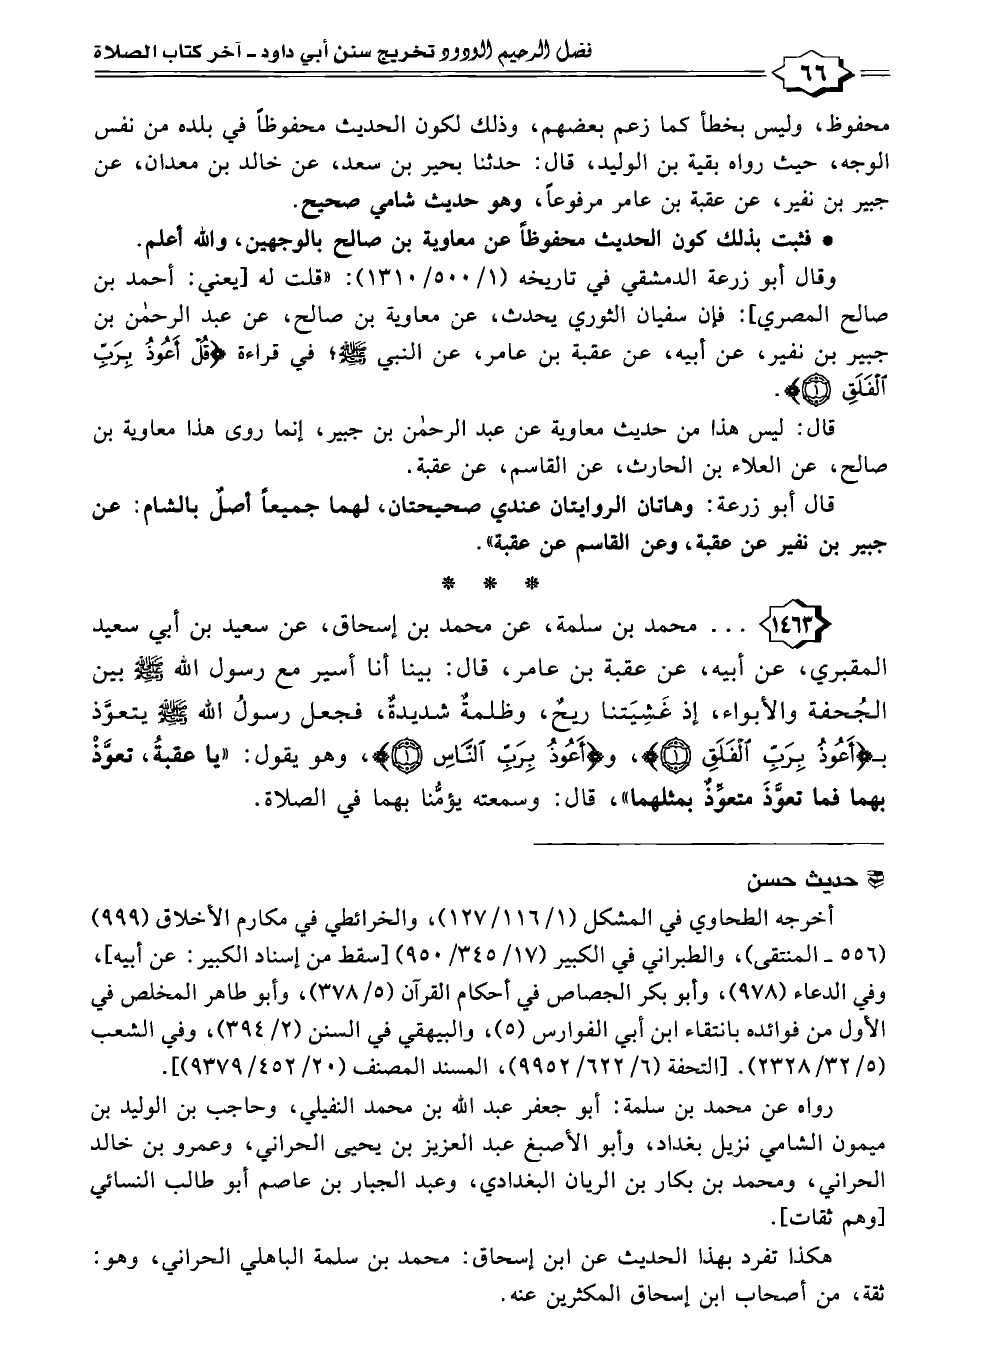 فضل الرحيم الودود تخريج سنن أبي داود - آخر كتاب الصلاة
٦٦
محفوظ، وليس بخطأ كما زعم بعضهم، وذلك لكون الحديث محفوظاً في بلده من نفس
الوجه، حيث رواه بقية بن الوليد، قال: حدثنا بحير بن سعد، عن خالد بن معدان، عن
جبير بن نفير، عن عقبة بن عامر مرفوعاً، وهو حديث شامي صحيح.
• فثبت بذلك كون الحديث محفوظاً عن معاوية بن صالح بالوجهين، والله أعلم.
وقال أبو زرعة الدمشقي في تاريخه (١/ ٥٠٠/ ١٣١٠): «قلت له [يعني: أحمد بن
صالح المصري]: فإن سفيان الثوري يحدث، عن معاوية بن صالح، عن عبد الرحمٰن بن
جبير بن نفير، عن أبيه، عن عقبة بن عامر، عن النبي ﷺ؛ في قراءة ﴿قُلْ أَعُوذُ بِرَبِّ
ٱلْفَلَقِ ۝١﴾.
قال: ليس هذا من حديث معاوية عن عبد الرحمٰن بن جبير، إنما روى هذا معاوية بن
صالح، عن العلاء بن الحارث، عن القاسم، عن عقبة.
قال أبو زرعة: وهاتان الروايتان عندي صحيحتان، لهما جميعاً أصلٌ بالشام: عن
جبير بن نفير عن عقبة، وعن القاسم عن عقبة».
* * *
١٤٦٣ ... محمد بن سلمة، عن محمد بن إسحاق، عن سعيد بن أبي سعيد
المقبري، عن أبيه، عن عقبة بن عامر، قال: بينا أنا أسير مع رسول الله ﷺ بين
الجُحفة والأبواء، إذ غَشِيَتنا ريحٌ، وظلمةٌ شديدةٌ، فجعل رسولُ الله ﷺ يتعوَّذ
بـ﴿أَعُوذُ بِرَبِّ ٱلْفَلَقِ ۝١﴾، و﴿أَعُوذُ بِرَبِّ ٱلنَّاسِ ۝١﴾، وهو يقول: «يا عقبةُ، تعوَّذْ
بهما فما تعوَّذَ متعوِّذٌ بمثلهما»، قال: وسمعته يؤمُّنا بهما في الصلاة.
حديث حسن
أخرجه الطحاوي في المشكل (١/ ١١٦/ ١٢٧)، والخرائطي في مكارم الأخلاق (٩٩٩)
(٥٥٦ - المنتقى)، والطبراني في الكبير (١٧/ ٣٤٥/ ٩٥٠) [سقط من إسناد الكبير: عن أبيه]،
وفي الدعاء (٩٧٨)، وأبو بكر الجصاص في أحكام القرآن (٥/ ٣٧٨)، وأبو طاهر المخلص في
الأول من فوائده بانتقاء ابن أبي الفوارس (٥)، والبيهقي في السنن (٢/ ٣٩٤)، وفي الشعب
(٥/ ٣٢/ ٢٣٢٨). [التحفة (٦/ ٦٢٢/ ٩٩٥٢)، المسند المصنف (٢٠/ ٤٥٢/ ٩٣٧٩)].
رواه عن محمد بن سلمة: أبو جعفر عبد الله بن محمد النفيلي، وحاجب بن الوليد بن
ميمون الشامي نزيل بغداد، وأبو الأصبغ عبد العزيز بن يحيى الحراني، وعمرو بن خالد
الحراني، ومحمد بن بكار بن الريان البغدادي، وعبد الجبار بن عاصم أبو طالب النسائي
[وهم ثقات].
هكذا تفرد بهذا الحديث عن ابن إسحاق: محمد بن سلمة الباهلي الحراني، وهو:
ثقة، من أصحاب ابن إسحاق المكثرين عنه.